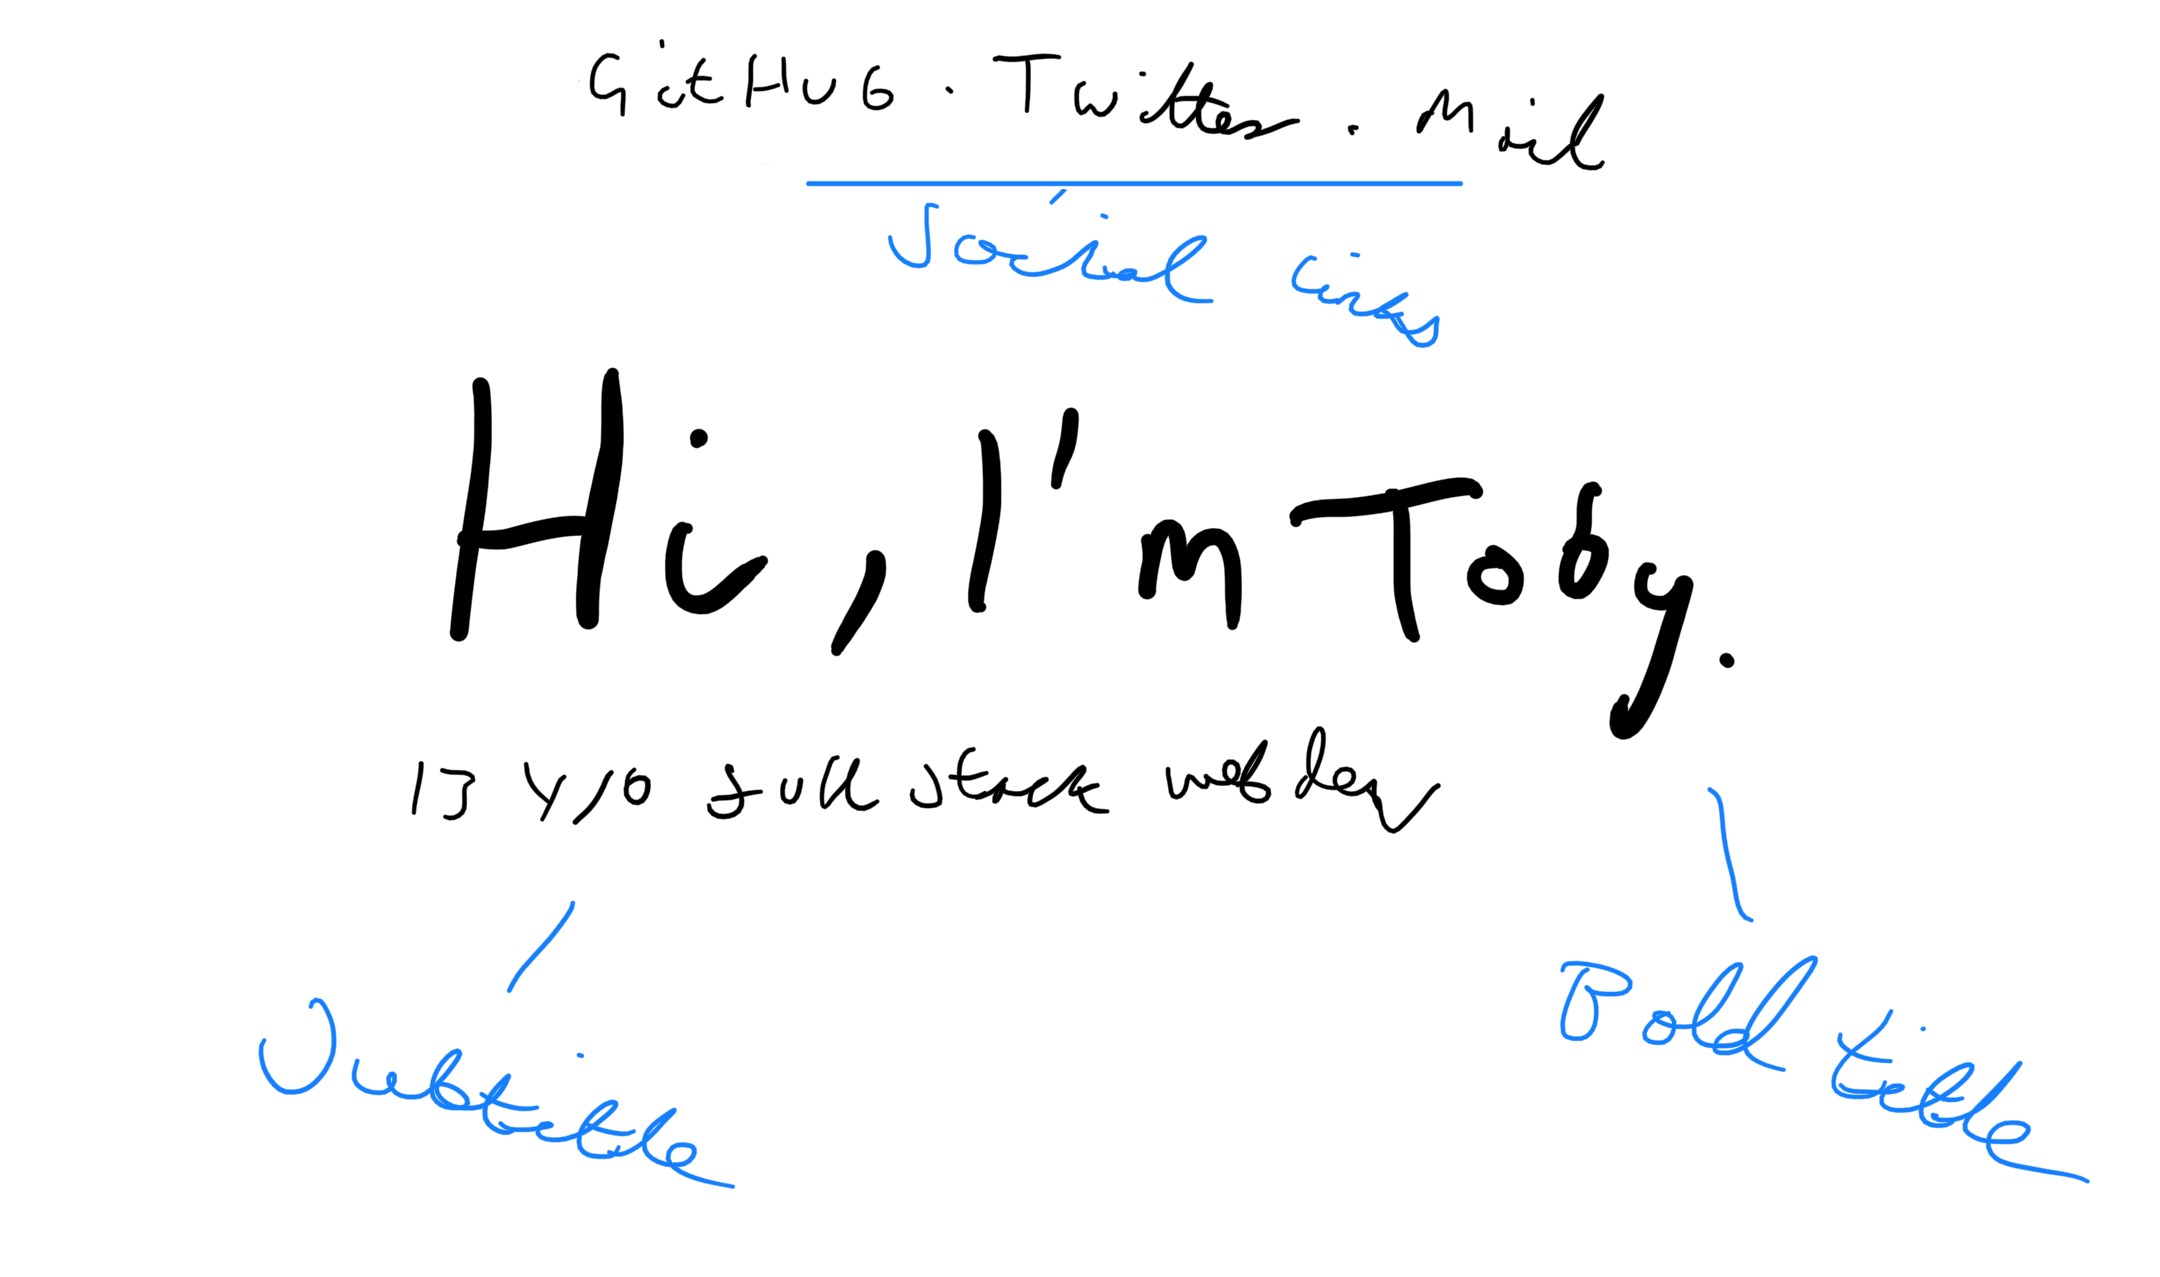 GitHub · Twitter · Mail
Social links
Hi, I'm Toby.
13 y/o full stack web dev
Subtitle
Bold title